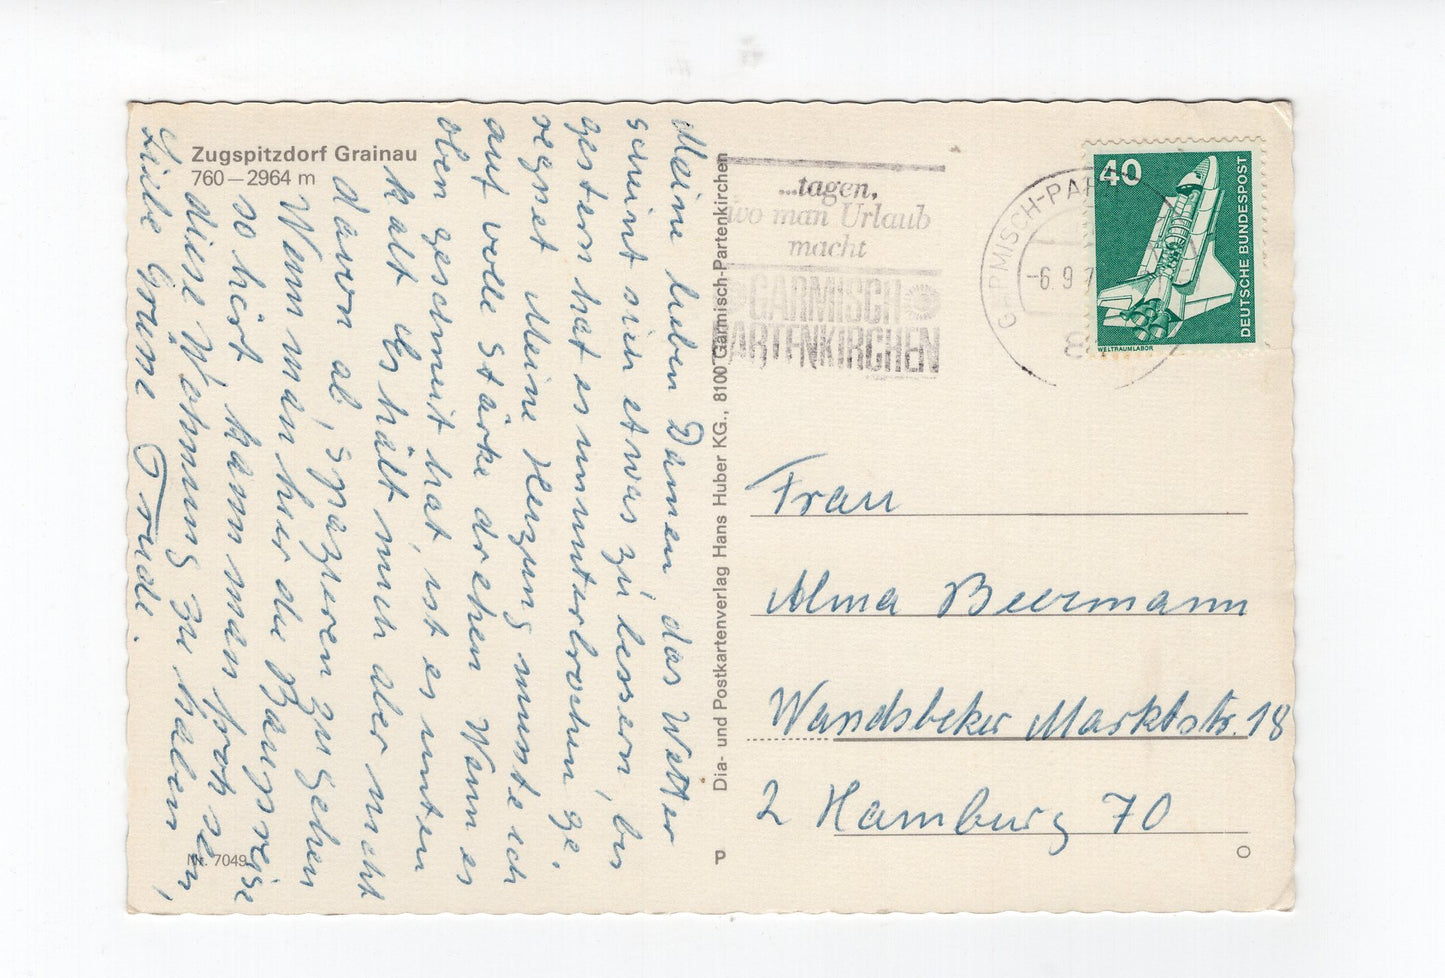 Zugspitzdorf Grainau
760—2964 m
Meine lieben Damen das Wetter
scheint sich etwas zu bessern, bis
gestern hat es ununterbrochen ge,
regnet. Meine Heizung musste ich
auf volle Stärke drehen. Wenn es
oben geschneit hat, ist es unten
kalt. Es hält mich aber nicht
davon ab, spazieren zu gehen
Wenn man hier die Baupreise
so hört kann man froh sein,
diese Wohnung zu haben,
Liebe Grüße Trudi.
Nr. 7049
Dia- und Postkartenverlag Hans Huber KG., 8100 Garmisch-Partenkirchen
P
...tagen,
wo man Urlaub
macht
GARMISCH
PARTENKIRCHEN
GARMISCH-PAR
-6.9.7
8
40
DEUTSCHE BUNDESPOST
WELTRAUMLABOR
Frau
Alma Beermann
Wandsbeker Marktstr. 18
2 Hamburg 70